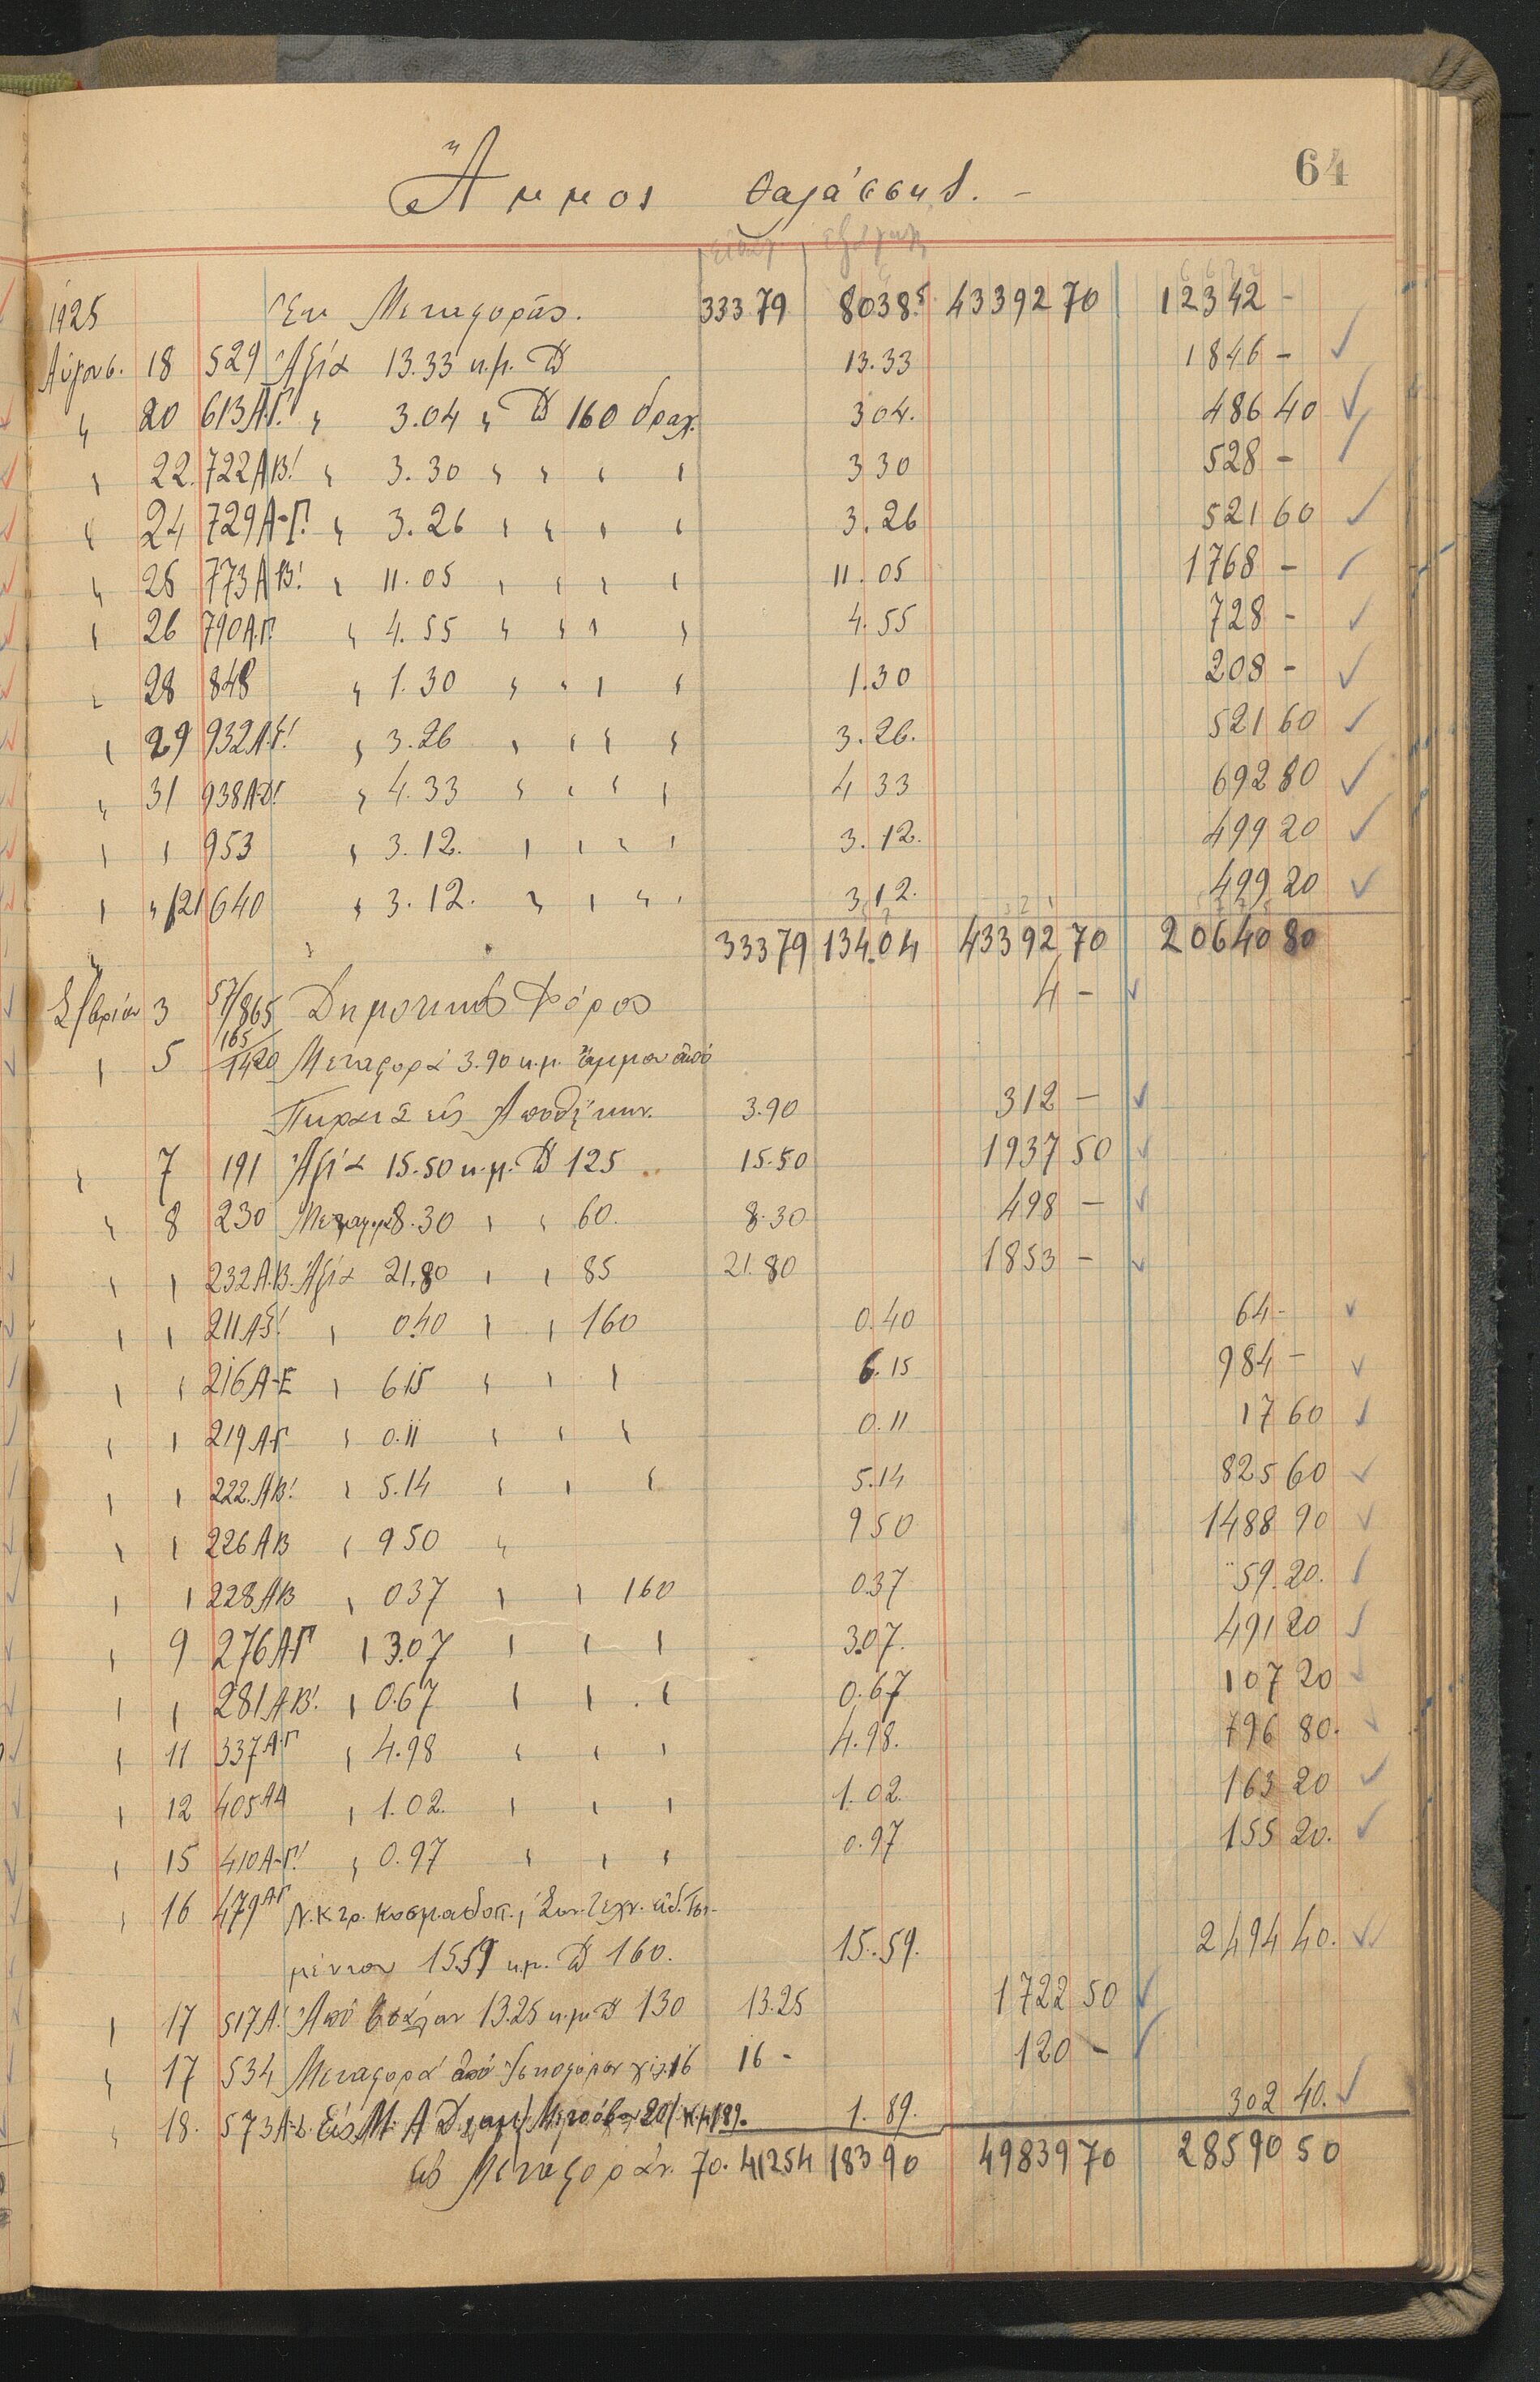 64
Ἄμμος θαλάσσης. –
1925 Ἐκ Μεταφορᾶς. 333 79 8038.5 43392 70 12342 –
Αὐγουσ. 18 529 Ἀξία 13.33 κ.μ. 13.33 1846 –
" 20 613 Α.Γ! " 3.04 " 160 δραχ. 3 04. 486 40
" 22. 722 Α Β! " 3.30 " " " " 3 30 528 –
" 24 729 Α-Γ! " 3.26 " " " " 3.26 521 60
" 26 773 Α Β! " 11.05 " " " " 11.05 1768 –
" 26 790 Α.Γ! " 4.55 " " " " 4.55 728 –
" 28 848 " 1.30 " " " " 1.30 208 –
" 29 932 Α-Σ! " 3.26 " " " " 3.26. 521 60
" 31 938 Α-Δ! " 4.33 " " " " 4 33 692 80
" " 953 " 3.12. " " " " 3.12. 499 20
" " /21 640 " 3.12. " " " " 3.12. 499 20
333 79 134.04 43392 70 20640 80
Σ/βρίου 3 57/865 Δημοτικὸς Φόρος 4 –
" 5 165/1420 Μεταφορά 3.90 κ.μ. ἄμμου ἀπὸ
Πειραιᾶ εἰς Ἀποθήκην. 3.90 312 –
" 7 191 Ἀξία 15.50 κ.μ. 125 15.50 1937 50
" 8 230 Μεταφορ 8.30 " " 60. 8.30 498 –
" " 232 Α.Β. Ἀξία 21.80 " " 85 21.80 1853 –
" " 211 Α-Σ! " 0.40 " " 160 0.40 64 –
" " 216 Α-Ε " 6 15 " " " 6.15 984 –
" " 219 Α-Γ " 0.11 " " " 0.11 17 60
" " 222. Α Β! " 5.14 " " " 5.14 825 60
" " 226 Α Β " 9 50 " 9 50 1488 90
" " 228 Α Β " 0 37 " " 160 0 37 59.20.
" 9 276 Α-Γ " 3.07 " " " 3.07. 491 20
" " 281 Α-Β! " 0.67 " " " 0.67 107 20
" 11 337 Α-Γ " 4.98 " " " 4.98. 796 80.
" 12 405 Α Δ " 1.02. " " " 1.02. 163 20
" 15 410 Α-Γ! " 0.97 " " " 0.97 155 20.
" 16 479 Α Γ
15 59 κ.μ. 160. 15.59. 2494 40.
" 17 517 Α! Ἀπὸ 13.25 κ.μ. 130 13.25 1722 50
" 17 534 Μεταφορά ἀπὸ 16 16 – 120 –
" 18. 573 Εἰς 1.89. 302 40.
εἰς Μεταφοράν. 70. 412 54 183 90 49839 70 28590 50